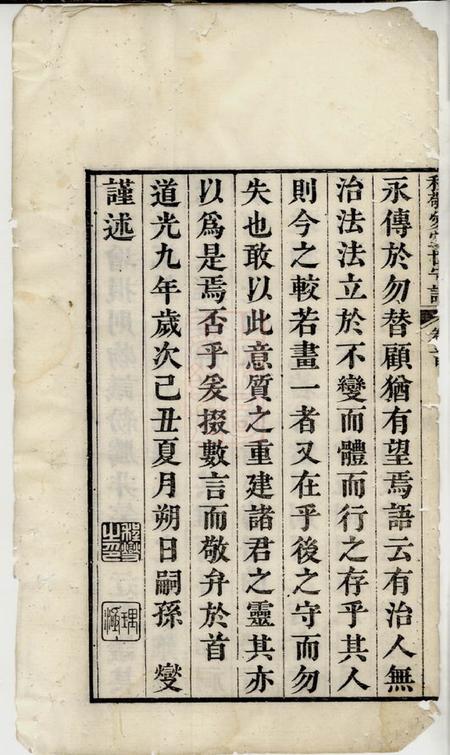 永傳於勿替顧猶有望焉語云有治人無
治法法立於不變而體而行之存乎其人
則今之較若畫一者又在乎後之守而勿
失也敢以此意質之重建諸君之靈其亦
以爲是焉否乎爰掇數言而敬弁於首
道光九年歲次己丑夏月朔日嗣孫 燮
謹述